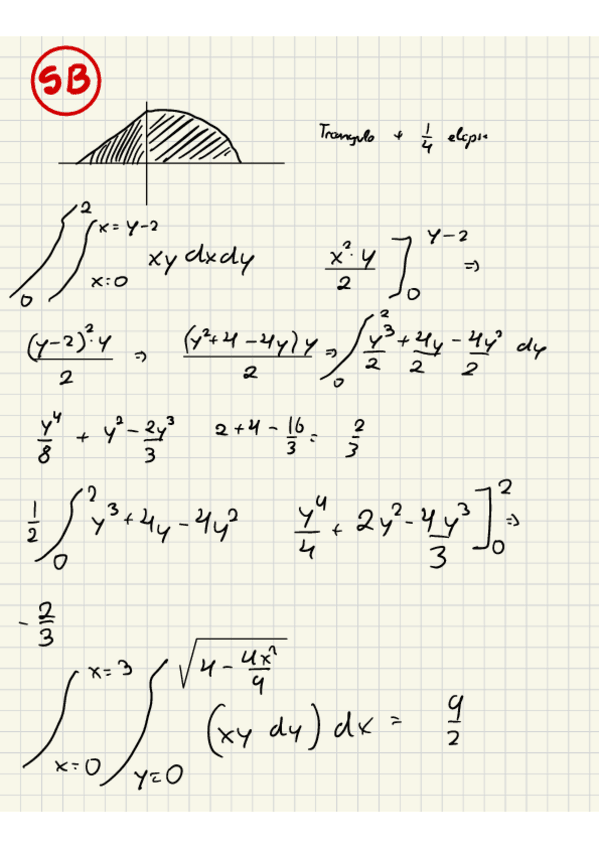 5B
Triangulo + 1/4 elipse
∫_0^2 ∫_{x=0}^{x=y-2} xy dxdy   x²·y/2 ]_0^{y-2} =>
(y-2)²·y/2 => (y²+4-4y)y/2 => ∫_0^2 y³/2 + 4y/2 - 4y²/2 dy
y⁴/8 + y² - 2y³/3   2+4-16/3 = 2/3
1/2 ∫_0^2 y³+4y-4y²   y⁴/4 + 2y² - 4y³/3 ]_0^2 =>
-2/3
∫_{x=0}^{x=3} ∫_{y=0}^{√(4-4x²/9)} (xy dy) dx = 9/2